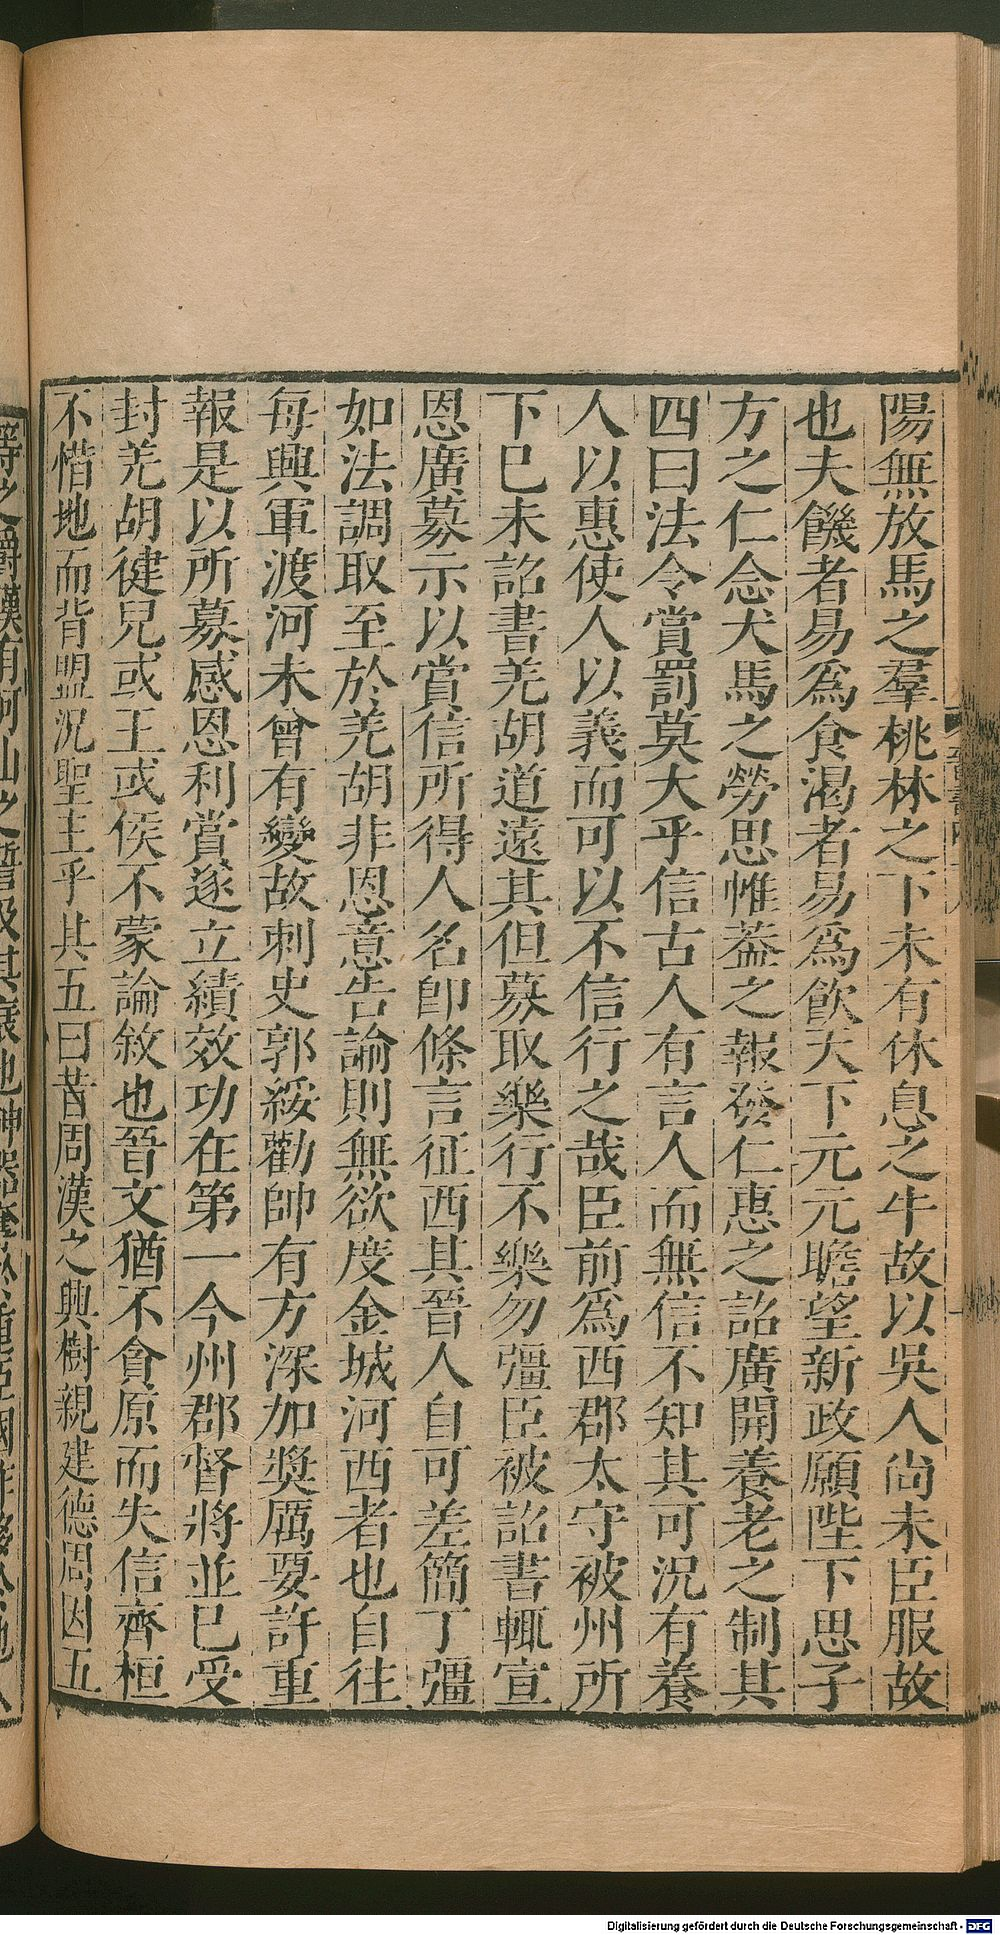 陽無放馬之羣桃林之下未有休息之牛故以吳人尙未臣服故
也夫饑者易爲食渴者易爲飮天下元元瞻望新政願陛下思子
方之仁念犬馬之勞思帷葢之報發仁惠之詔廣開養老之制其
四曰法令賞罰莫大乎信古人有言人而無信不知其可況有養
人以惠使人以義而可以不信行之哉臣前爲西郡太守被州所
下巳未詔書羌胡道遠其但募取樂行不樂勿彊臣被詔書輒宣
恩廣募示以賞信所得人名卽條言征西其晉人自可差簡丁彊
如法調取至於羌胡非恩意告諭則無欲度金城河西者也自往
每興軍渡河未曾有變故刺史郭綏勸帥有方深加奬厲要許重
報是以所募感恩利賞遂立績效功在第一今州郡督將並巳受
封羌胡徤兒或王或侯不蒙論敘也晉文猶不貪原而失信齊桓
不惜地而背盟況聖主乎其五曰昔周漢之興樹親建德周因五
Digitalisierung gefördert durch die Deutsche Forschungsgemeinschaft - DFG